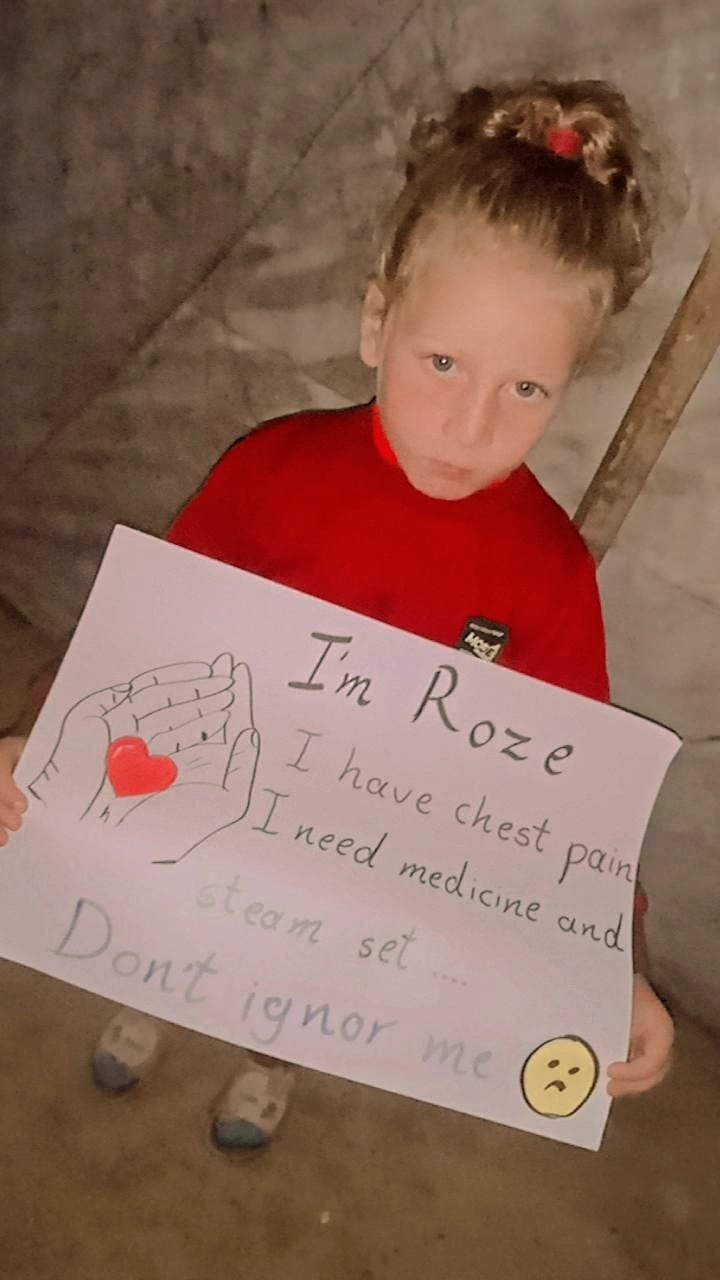 I'm Roze
I have chest pain
I need medicine and
steam set ....
Don't ignor me